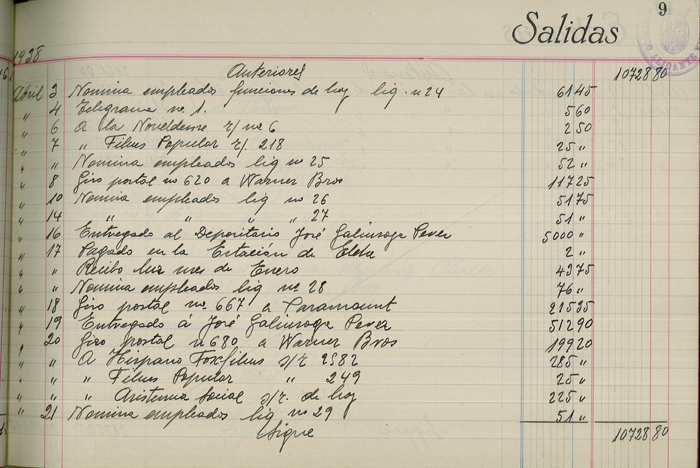 9
Salidas
1938
Anteriores 10728 80
Abril 3 Nomina empleados funciones de hoy liq. nº 24 61 45
" 4 Telegrama nº 1. 5 60
" 6 A la Noveldense r/ nº 6 2 50
" 7 " Films Popular r/. 218 25 "
" " Nomina empleados liq nº 25 52 "
" 8 Giro postal nº 620 a Warner Bros 117 25
" 10 Nomina empleados liq nº 26 51 75
" 14 " " " " 27 51 "
" 16 Entregado al Depositario José Galiursoga Perez 5000 "
" 17 Pagado en la Estación de Elda 2 "
" " Recibo luz mes de Enero 43 75
" " Nomina empleados liq nº 28 76 "
" 18 Giro postal nº 667 a Paramount 215 35
" 19 Entregado á José Galiursoga Perez 512 90
" 20 Giro postal nº 680 a Warner Bros 199 20
" " A Hispano Foxfilms s/r 2582 285 "
" " " Films Popular " 249 25 "
" " " Asistencia Social s/r. de hoy 225 "
" 21 Nomina empleados liq nº 29 51 "
Sigue 10728 80